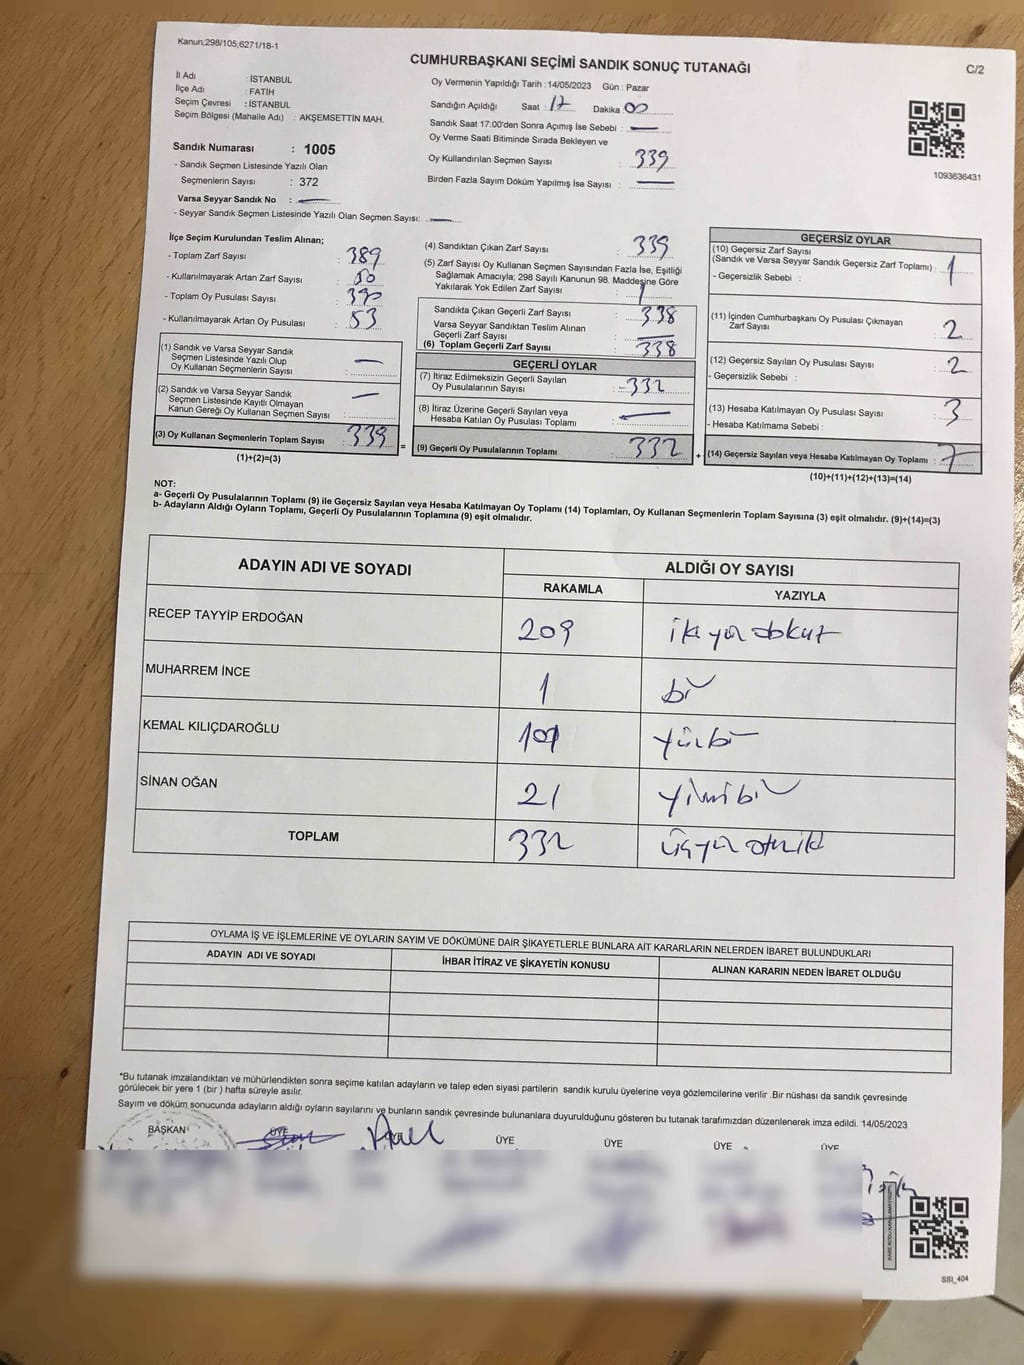 Kanun;298/105;6271/18-1
CUMHURBAŞKANI SEÇİMİ SANDIK SONUÇ TUTANAĞI
C/2
İl Adı : İSTANBUL
İlçe Adı : FATİH
Seçim Çevresi : İSTANBUL
Seçim Bölgesi (Mahalle Adı) : AKŞEMSETTİN MAH.
Sandık Numarası : 1005
- Sandık Seçmen Listesinde Yazılı Olan
Seçmenlerin Sayısı : 372
Varsa Seyyar Sandık No : —
- Seyyar Sandık Seçmen Listesinde Yazılı Olan Seçmen Sayısı: —
Oy Vermenin Yapıldığı Tarih : 14/05/2023 Gün : Pazar
Sandığın Açıldığı Saat : 17 Dakika : 00
Sandık Saat 17:00'den Sonra Açımış İse Sebebi : —
Oy Verme Saati Bitiminde Sırada Bekleyen ve
Oy Kullandırılan Seçmen Sayısı : 339
Birden Fazla Sayım Döküm Yapılmış İse Sayısı : —
1093636431
İlçe Seçim Kurulundan Teslim Alınan;
- Toplam Zarf Sayısı : 389
- Kullanılmayarak Artan Zarf Sayısı : 50
- Toplam Oy Pusulası Sayısı :
- Kullanılmayarak Artan Oy Pusulası : 53
(1) Sandık ve Varsa Seyyar Sandık
Seçmen Listesinde Yazılı Olup
Oy Kullanan Seçmenlerin Sayısı : —
(2) Sandık ve Varsa Seyyar Sandık
Seçmen Listesinde Kayıtlı Olmayan
Kanun Gereği Oy Kullanan Seçmen Sayısı : —
(3) Oy Kullanan Seçmenlerin Toplam Sayısı : 339
(1)+(2)=(3)
(4) Sandıktan Çıkan Zarf Sayısı : 339
(5) Zarf Sayısı Oy Kullanan Seçmen Sayısından Fazla İse, Eşitliği
Sağlamak Amacıyla; 298 Sayılı Kanunun 98. Maddesine Göre
Yakılarak Yok Edilen Zarf Sayısı : 1
Sandıkta Çıkan Geçerli Zarf Sayısı : 338
Varsa Seyyar Sandıktan Teslim Alınan
Geçerli Zarf Sayısı : —
(6) Toplam Geçerli Zarf Sayısı : 338
GEÇERLİ OYLAR
(7) İtiraz Edilmeksizin Geçerli Sayılan
Oy Pusulalarının Sayısı : 332
(8) İtiraz Üzerine Geçerli Sayılan veya
Hesaba Katılan Oy Pusulası Toplamı : —
= (9) Geçerli Oy Pusulalarının Toplamı : 332 +
GEÇERSİZ OYLAR
(10) Geçersiz Zarf Sayısı
(Sandık ve Varsa Seyyar Sandık Geçersiz Zarf Toplamı) : 1
- Geçersizlik Sebebi :
(11) İçinden Cumhurbaşkanı Oy Pusulası Çıkmayan
Zarf Sayısı : 2
(12) Geçersiz Sayılan Oy Pusulası Sayısı : 2
- Geçersizlik Sebebi :
(13) Hesaba Katılmayan Oy Pusulası Sayısı : 3
- Hesaba Katılmama Sebebi :
(14) Geçersiz Sayılan veya Hesaba Katılmayan Oy Toplamı : 7
(10)+(11)+(12)+(13)=(14)
NOT:
a- Geçerli Oy Pusulalarının Toplamı (9) ile Geçersiz Sayılan veya Hesaba Katılmayan Oy Toplamı (14) Toplamları, Oy Kullanan Seçmenlerin Toplam Sayısına (3) eşit olmalıdır. (9)+(14)=(3)
b- Adayların Aldığı Oyların Toplamı, Geçerli Oy Pusulalarının Toplamına (9) eşit olmalıdır.
ADAYIN ADI VE SOYADI
ALDIĞI OY SAYISI
RAKAMLA YAZIYLA
RECEP TAYYİP ERDOĞAN 209 iki yüz dokuz
MUHARREM İNCE 1 bir
KEMAL KILIÇDAROĞLU 101 yüzbir
SİNAN OĞAN 21 yirmibir
TOPLAM 332 üçyüz otuziki
OYLAMA İŞ VE İŞLEMLERİNE VE OYLARIN SAYIM VE DÖKÜMÜNE DAİR ŞİKAYETLERLE BUNLARA AİT KARARLARIN NELERDEN İBARET BULUNDUKLARI
ADAYIN ADI VE SOYADI İHBAR İTİRAZ VE ŞİKAYETİN KONUSU ALINAN KARARIN NEDEN İBARET OLDUĞU
*Bu tutanak imzalandıktan ve mühürlendikten sonra seçime katılan adayların ve talep eden siyasi partilerin sandık kurulu üyelerine veya gözlemcilerine verilir .Bir nüshası da sandık çevresinde
görülecek bir yere 1 (bir ) hafta süreyle asılır.
Sayım ve döküm sonucunda adayların aldığı oyların sayılarını ve bunların sandık çevresinde bulunanlara duyurulduğunu gösteren bu tutanak tarafımızdan düzenlenerek imza edildi. 14/05/2023
BAŞKAN ÜYE ÜYE ÜYE ÜYE ÜYE ÜYE
SSI_404